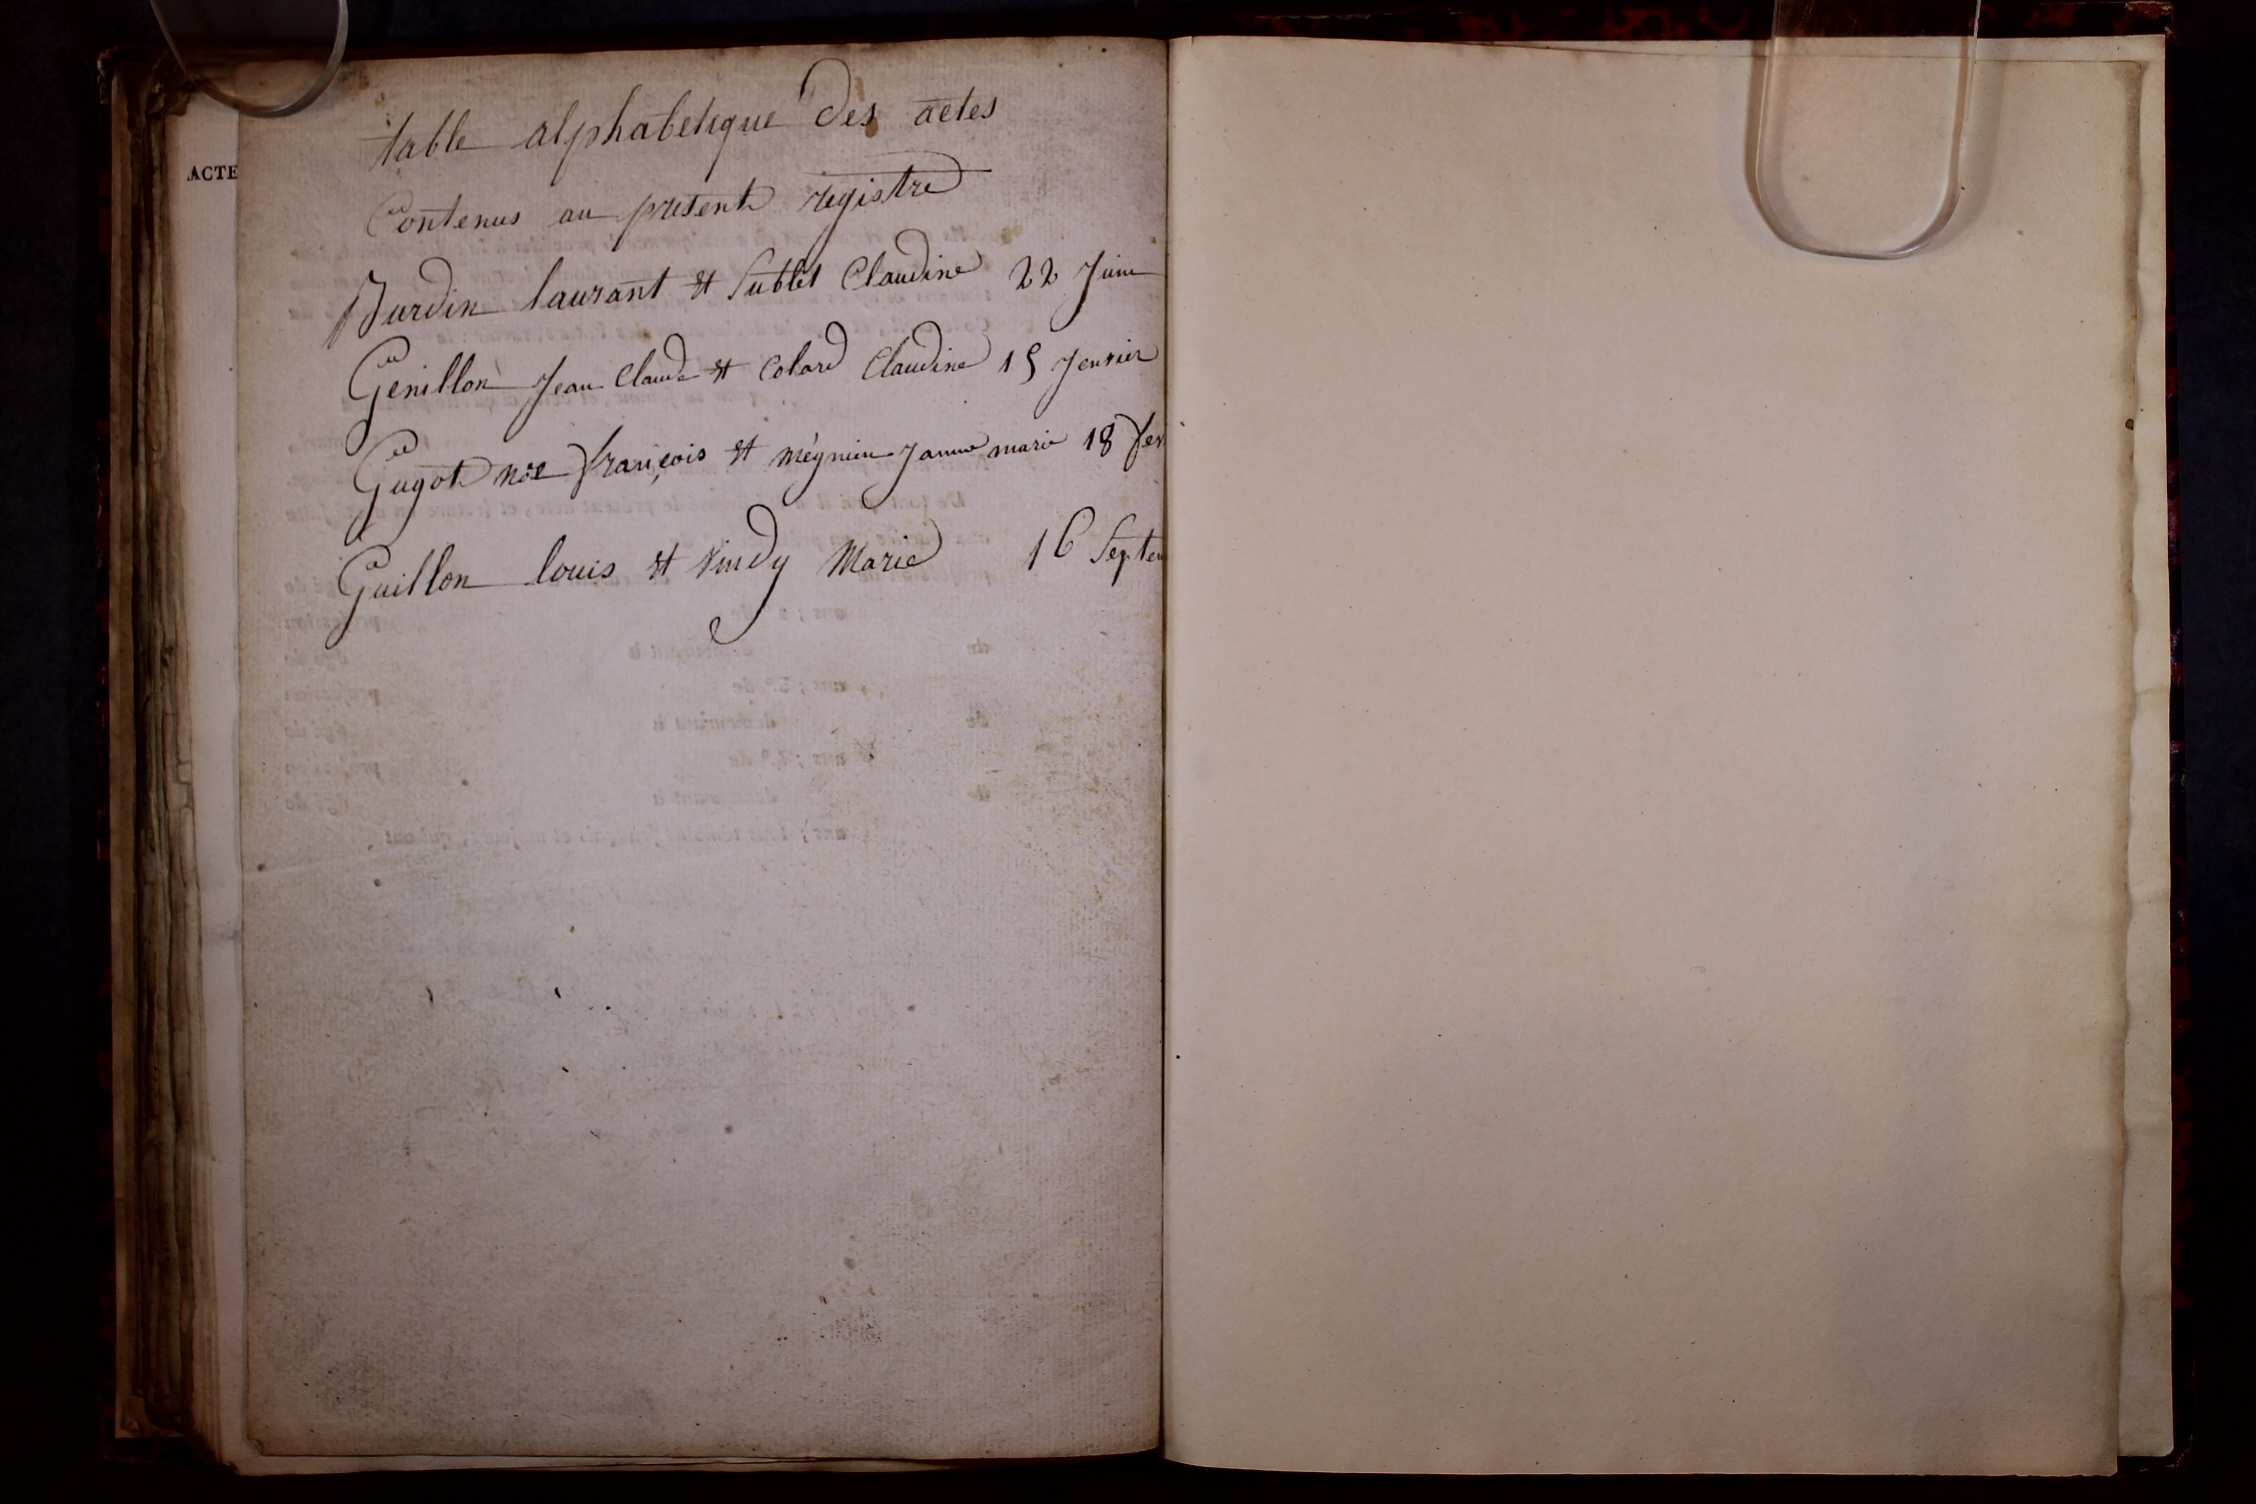 ACTE
table alphabetique des actes
Contenus au present registre
Burdin laurant et Sublet Claudine 22 Juin
Genillon Jean Claude et Colard Claudine 15 Jenvier
Gugot françois et mégnien Janne marie 18 fev
Guillon louis et Vindy Marie 16 Septem